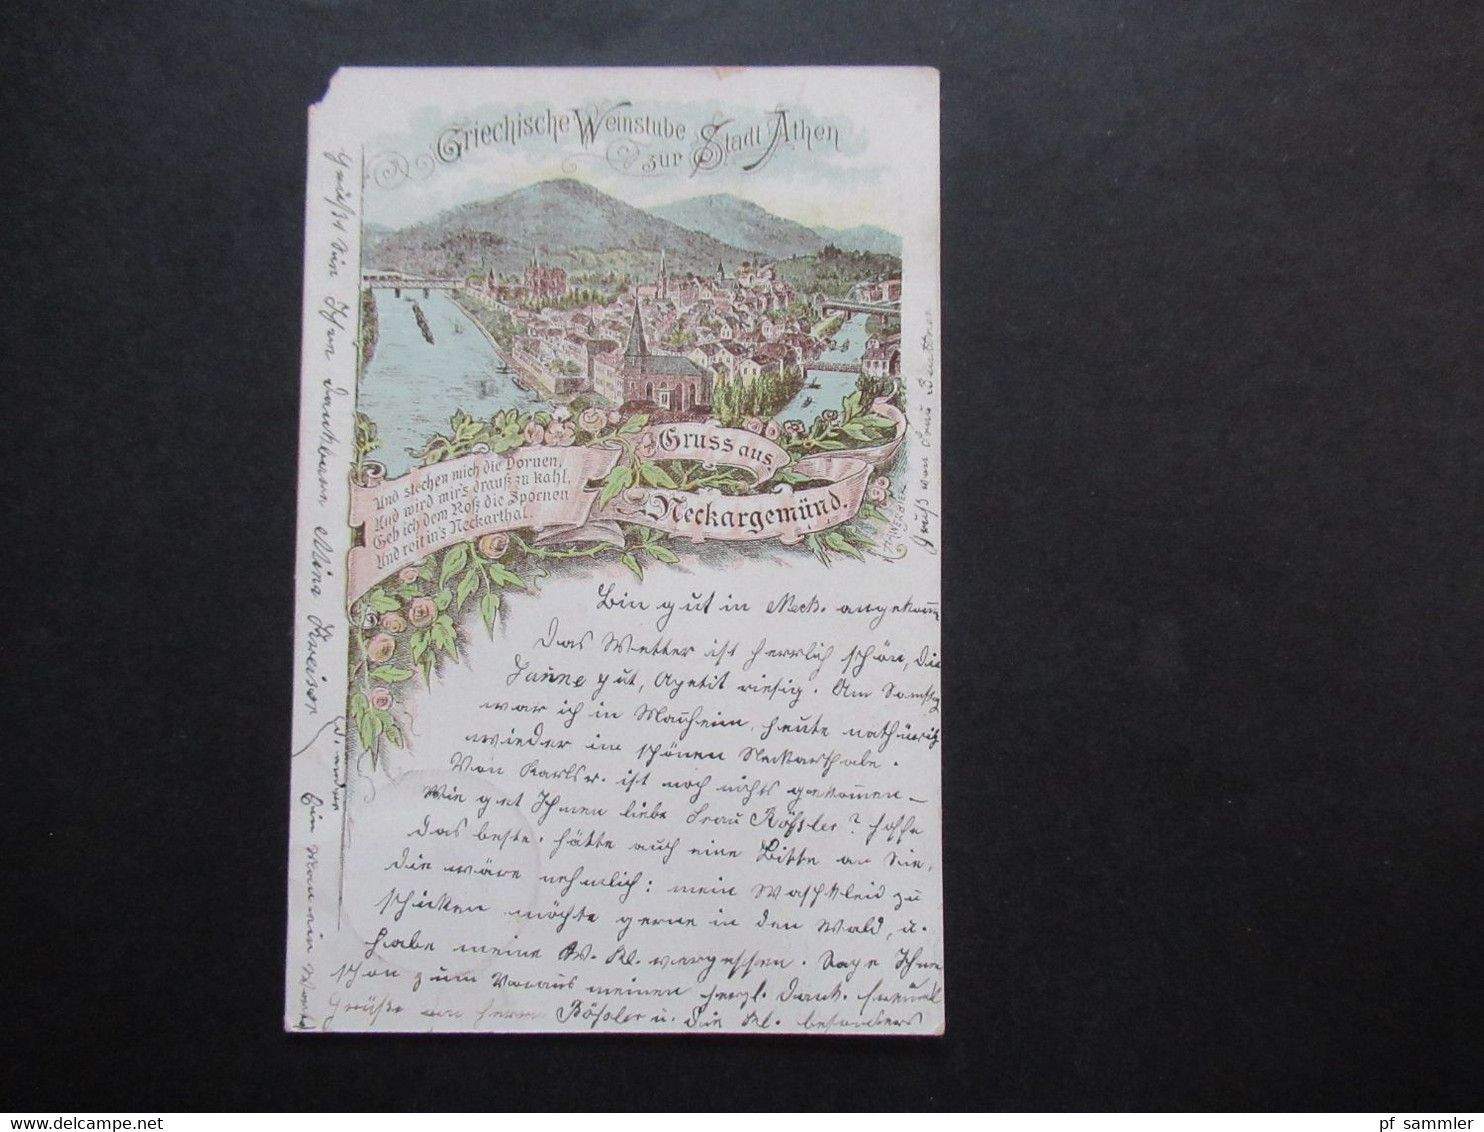 Griechische Weinstube
zur Stadt Athen
Gruss aus
Neckargemünd.
Und stechen mich die Dornen,
Und wird mir's drauß zu kahl,
Geb ich dem Roß die Spornen
Und reit in's Neckarthal.
Bin gut in Neck. angekomm
Das Wetter ist herrlich schön, die
Laune gut, Apetit riesig. Am Samstag
war ich in Manheim, heute
wieder im schönen Neckarthale.
Von Karlsr. ist noch nichts gekommen –
Wie get Ihnen liebe Frau Rößler? hoffe
das beste. hätte auch eine Bitte an Sie,
die wäre nehmlich: mein Waschkleid zu
schicken möchte gerne in den Wald, u.
habe meine W. Kl. vergessen. Sage Ihnen
schon zum Voraus meinen herzl. Dank.
Grüße an Herrn Rößler u. die Kl. besonders
Grüßt Sie Ihre dankbare Mina
Ein Mann ein Wort
Gruß von Frau
pf_sammler